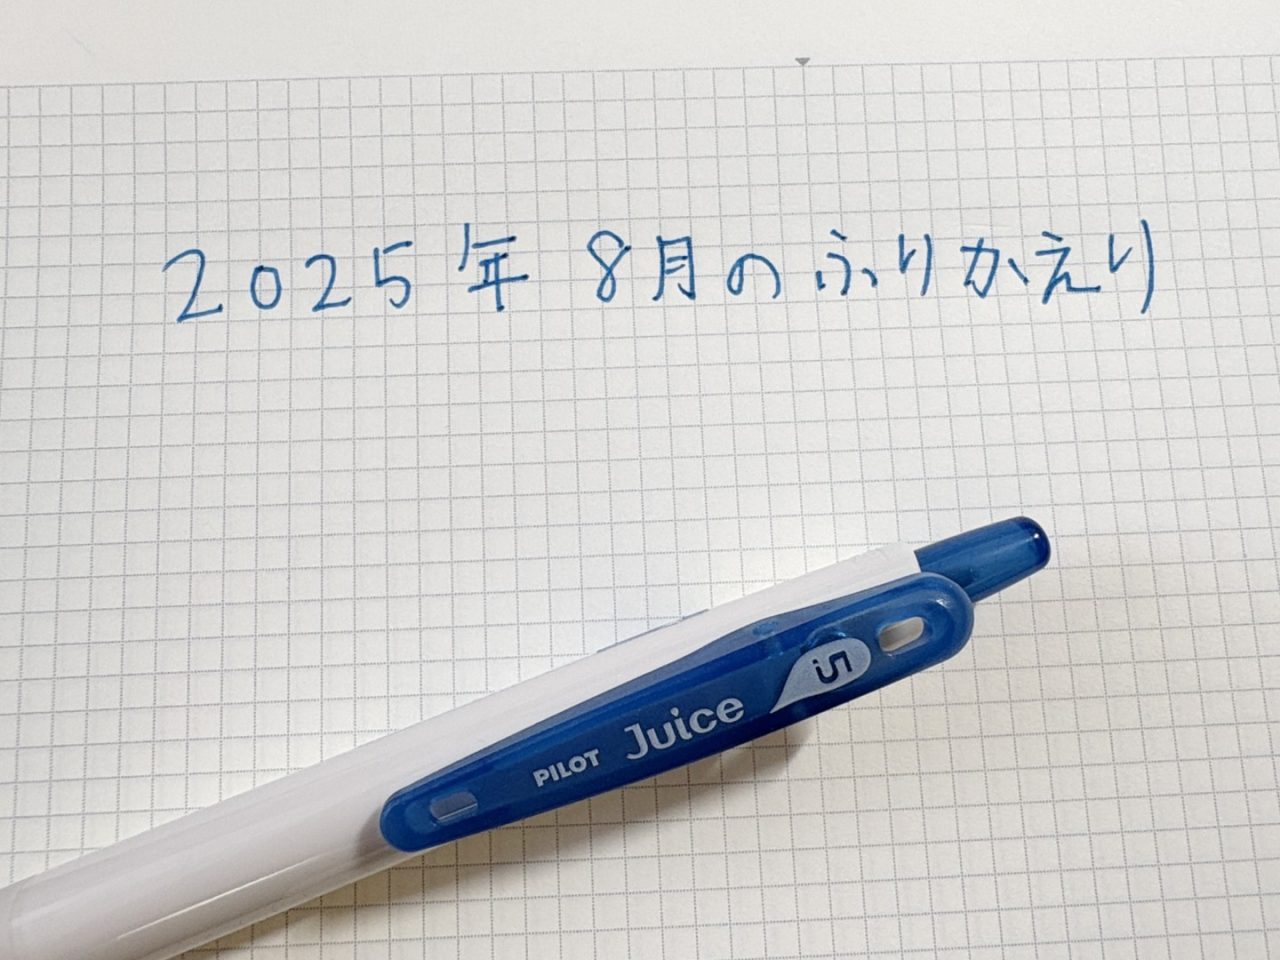 2025年 8月のふりかえり
PILOT Juice 5